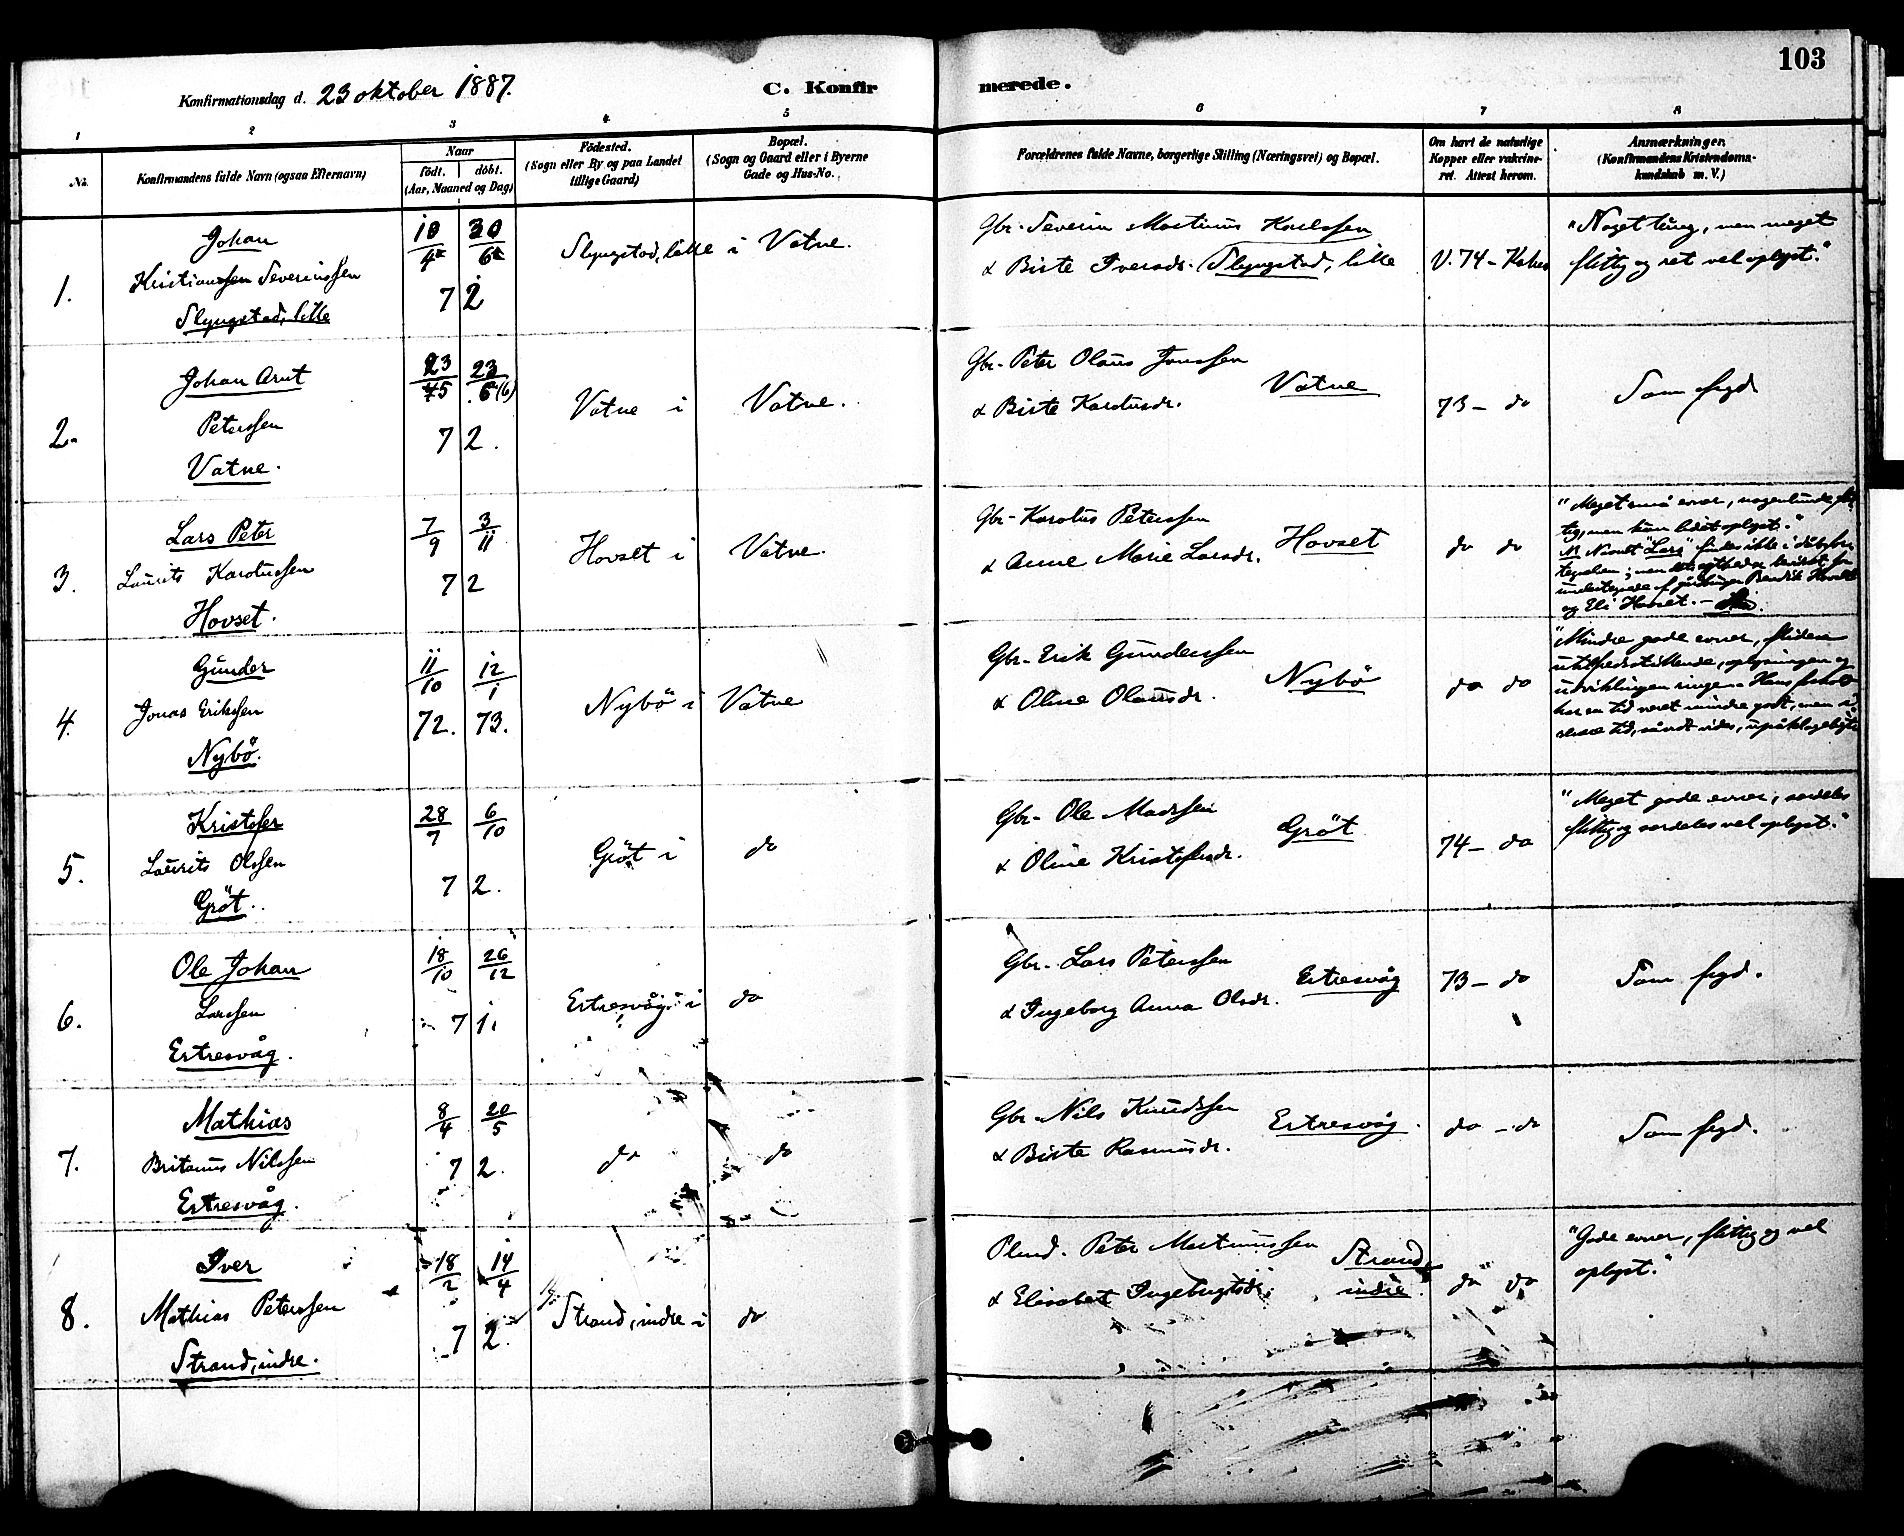 103
Konfirmationsdag d. 23 oktober 1887.
C. Konfir
merede.
1 2 3 4 5 6 7 8
No.
Konfirmandens fulde Navn (ogsaa Efternavn)
Naar
födt. döbt.
(Aar, Maaned og Dag)
Födested.
(Sogn eller By og paa Landet
tillige Gaard)
Bopæl.
(Sogn og Gaard eller i Byerne
Gade og Hus-No.
Forældrenes fulde Navne, borgerlige Stilling (Næringsvei) og Bopæl.
Om havt de naturlige
Kopper eller vakcine-
ret. Attest herom.
Anmærkninger.
(Konfirmandens Kristendoms-
kundskab m. V.)
1.
Johan
Kristianssen Severinssen
Slyngstad, lille
10/4 30/6
7 2
Slyngstad, lille i Vatne.
Gbr. Severin Martinus
& Birte Iversdr. Slyngstad, lille
V. 74 -
"Noget tung, men meget
flittig og ret vel oplyst."
2.
Johan Arnt
Peterssen
Vatne.
23 23
7 2.
Vatne i Vatne.
Gbr. Peter Olaus Jonssen
& Birte Karolusdr. Vatne
73 - do
Som frgd.
3.
Lars Peter
Laurits Karolussen
Hovset.
7/9 3/11
7 2
Hovset i Vatne.
Gbr. Karolus Peterssen
& Anne Marie Larsdr. Hovset
do do
"Meget små evner, nogenlunde
men kun lidet oplyst."
Navnet "Lars" findes ikke i
og Eli Hovset. -
4.
Gunder
Jonas Erikssen
Nybö.
11/10 12/1
72. 73.
Nybö i Vatne
Gbr. Erik Gunderssen
& Oline Olausdr. Nybö
do do
"Mindre gode evner, fliden
utilfredsstillende, oplysningen og
udviklingen ringe.
har en tid været mindre god, men i
5.
Kristofer
Laurits Olssen
Gröt.
28/7 6/10
7 2.
Gröt i do
Gbr. Ole Madssen
& Oline Kristofersdr. Gröt
74 - do
"Meget gode evner, særdeles
flittig og særdeles vel oplyst."
6.
Ole Johan
Larssen
Ertresvåg.
18/10 26/12
7 1.
Ertresvåg i do
Gbr. Lars Peterssen
& Ingeborg Anna Olsdr. Ertresvåg
73 - do
Som frgd.
7.
Mathias
Britanus Nilssen
Ertresvåg.
8/4 20/5
7 2.
do do
Gbr. Nils Knudssen
& Birte Rasmusdr. Ertresvåg.
do - do
Som frgd.
8.
Iver
Mathias Peterssen
Strand, indre.
18/2 14/4
7 2.
Strand, indre i do
Plmd. Peter Martinussen Strand
& Elisabet Ingebrigtsdr. indre.
do do
"Gode evner, flittig og vel
oplyst."